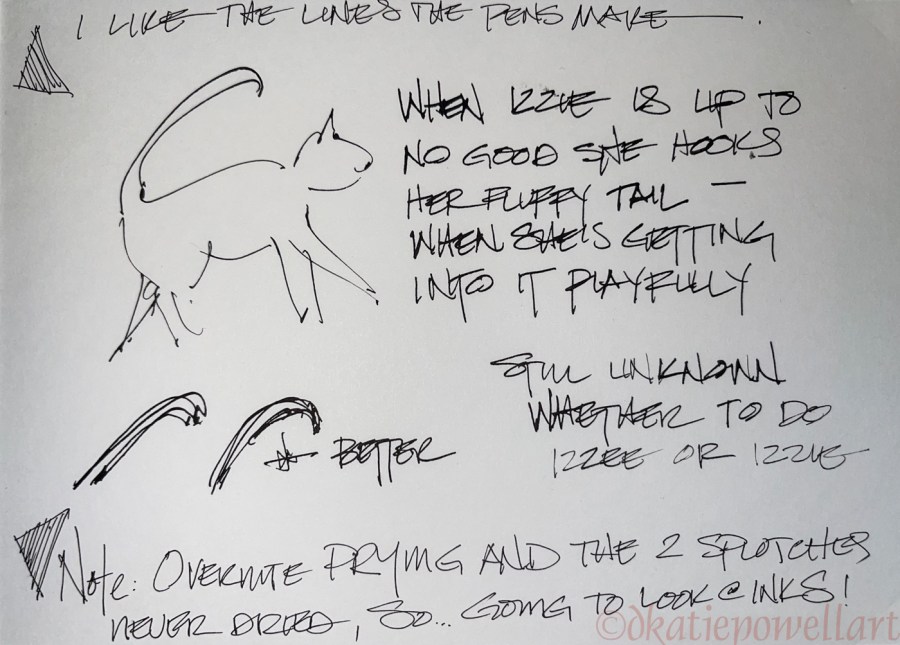 I LIKE THE LINES THE PENS MAKE.
WHEN IZZIE IS UP TO
NO GOOD SHE HOOKS
HER FLUFFY TAIL —
WHEN SHE'S GETTING
INTO IT PLAYFULLY
STILL UNKNOWN
WHETHER TO DO
IZZEE OR IZZIE
BETTER
NOTE: OVERNITE DRYING AND THE 2 SPLOTCHES
NEVER DRIED, SO... GOING TO LOOK @ INKS!
©dkatiepowellart